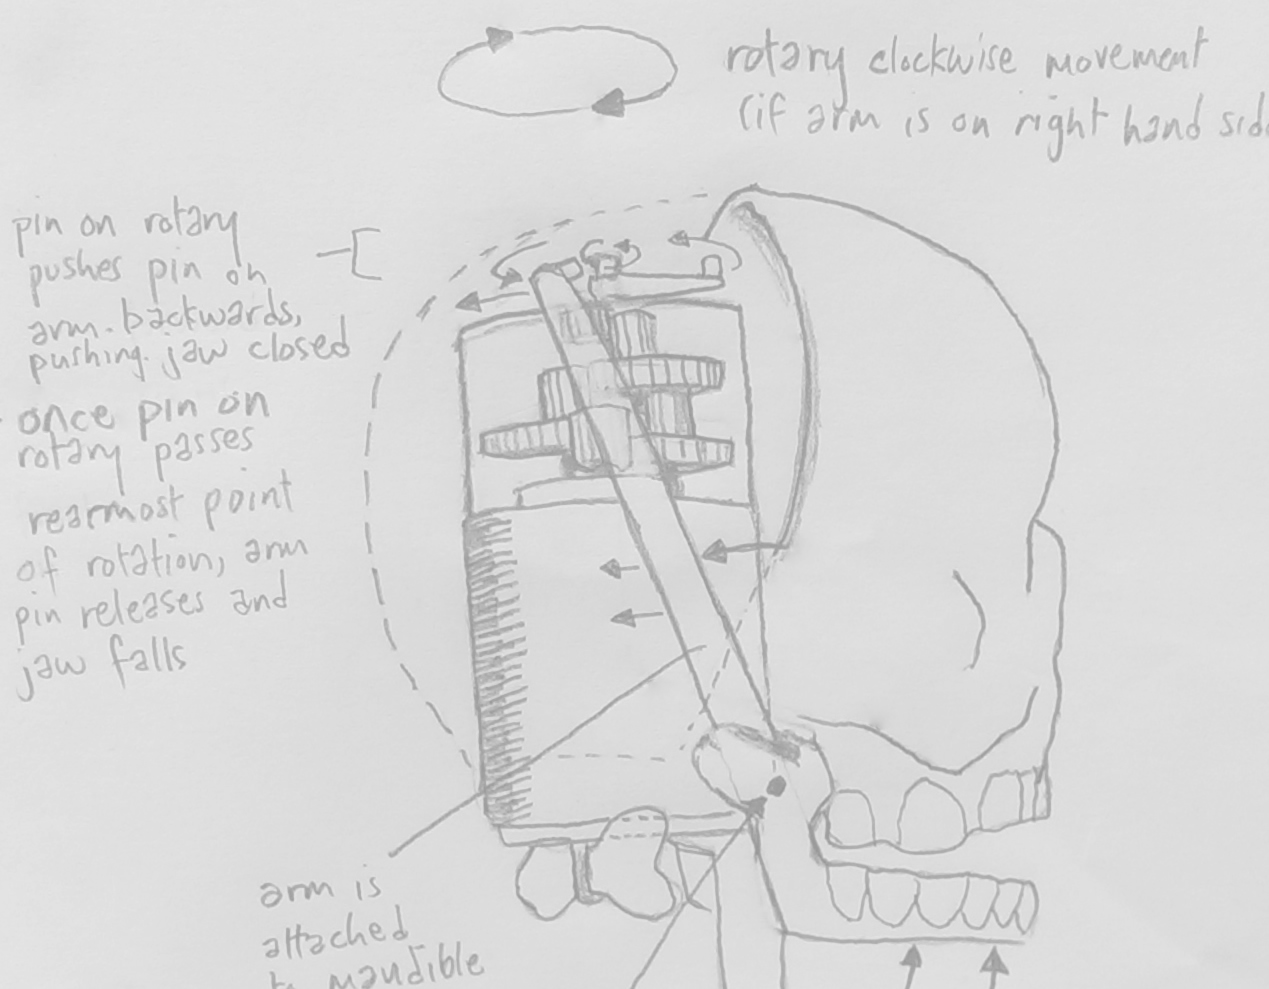 rotary clockwise movement
(if arm is on right hand side
pin on rotary
pushes pin on
arm. backwards,
pushing. jaw closed
once pin on
rotary passes
rearmost point
of rotation, arm
pin releases and
jaw falls
arm is
attached
to mandible